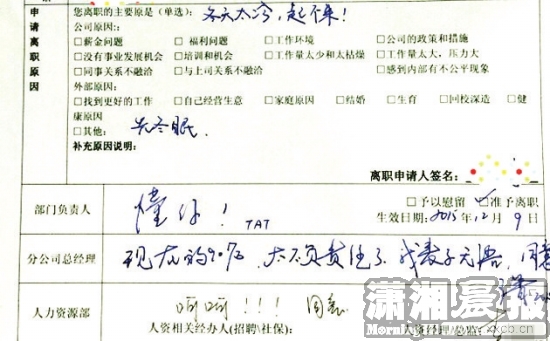 申请离职原因
您离职的主要原是(单选): 冬天太冷,起不来!
公司原因::
□薪金问题 □福利问题 □工作环境 □公司的政策和措施
□没有事业发展机会 □培训和机会 □工作量太少和太枯燥 □工作量太大,压力大
□同事关系不融洽 □与上司关系不融洽 □感到内部有不公平现象
外部原因:
□找到更好的工作 □自己经营生意 □家庭原因 □结婚 □生育 □回校深造 □健
康原因
□其他: 去冬眠.
补充原因说明:
离职申请人签名:
部门负责人
懂你! TAT
□予以慰留 准予离职
生效日期: 2015年12月9日
分公司总经理
现在的90后,太不负责任了.我表示无语,同意
人力资源部
呵呵!!! 同意
人资相关经办人(招聘\社保):
人资经理\总监:
潇湘晨报